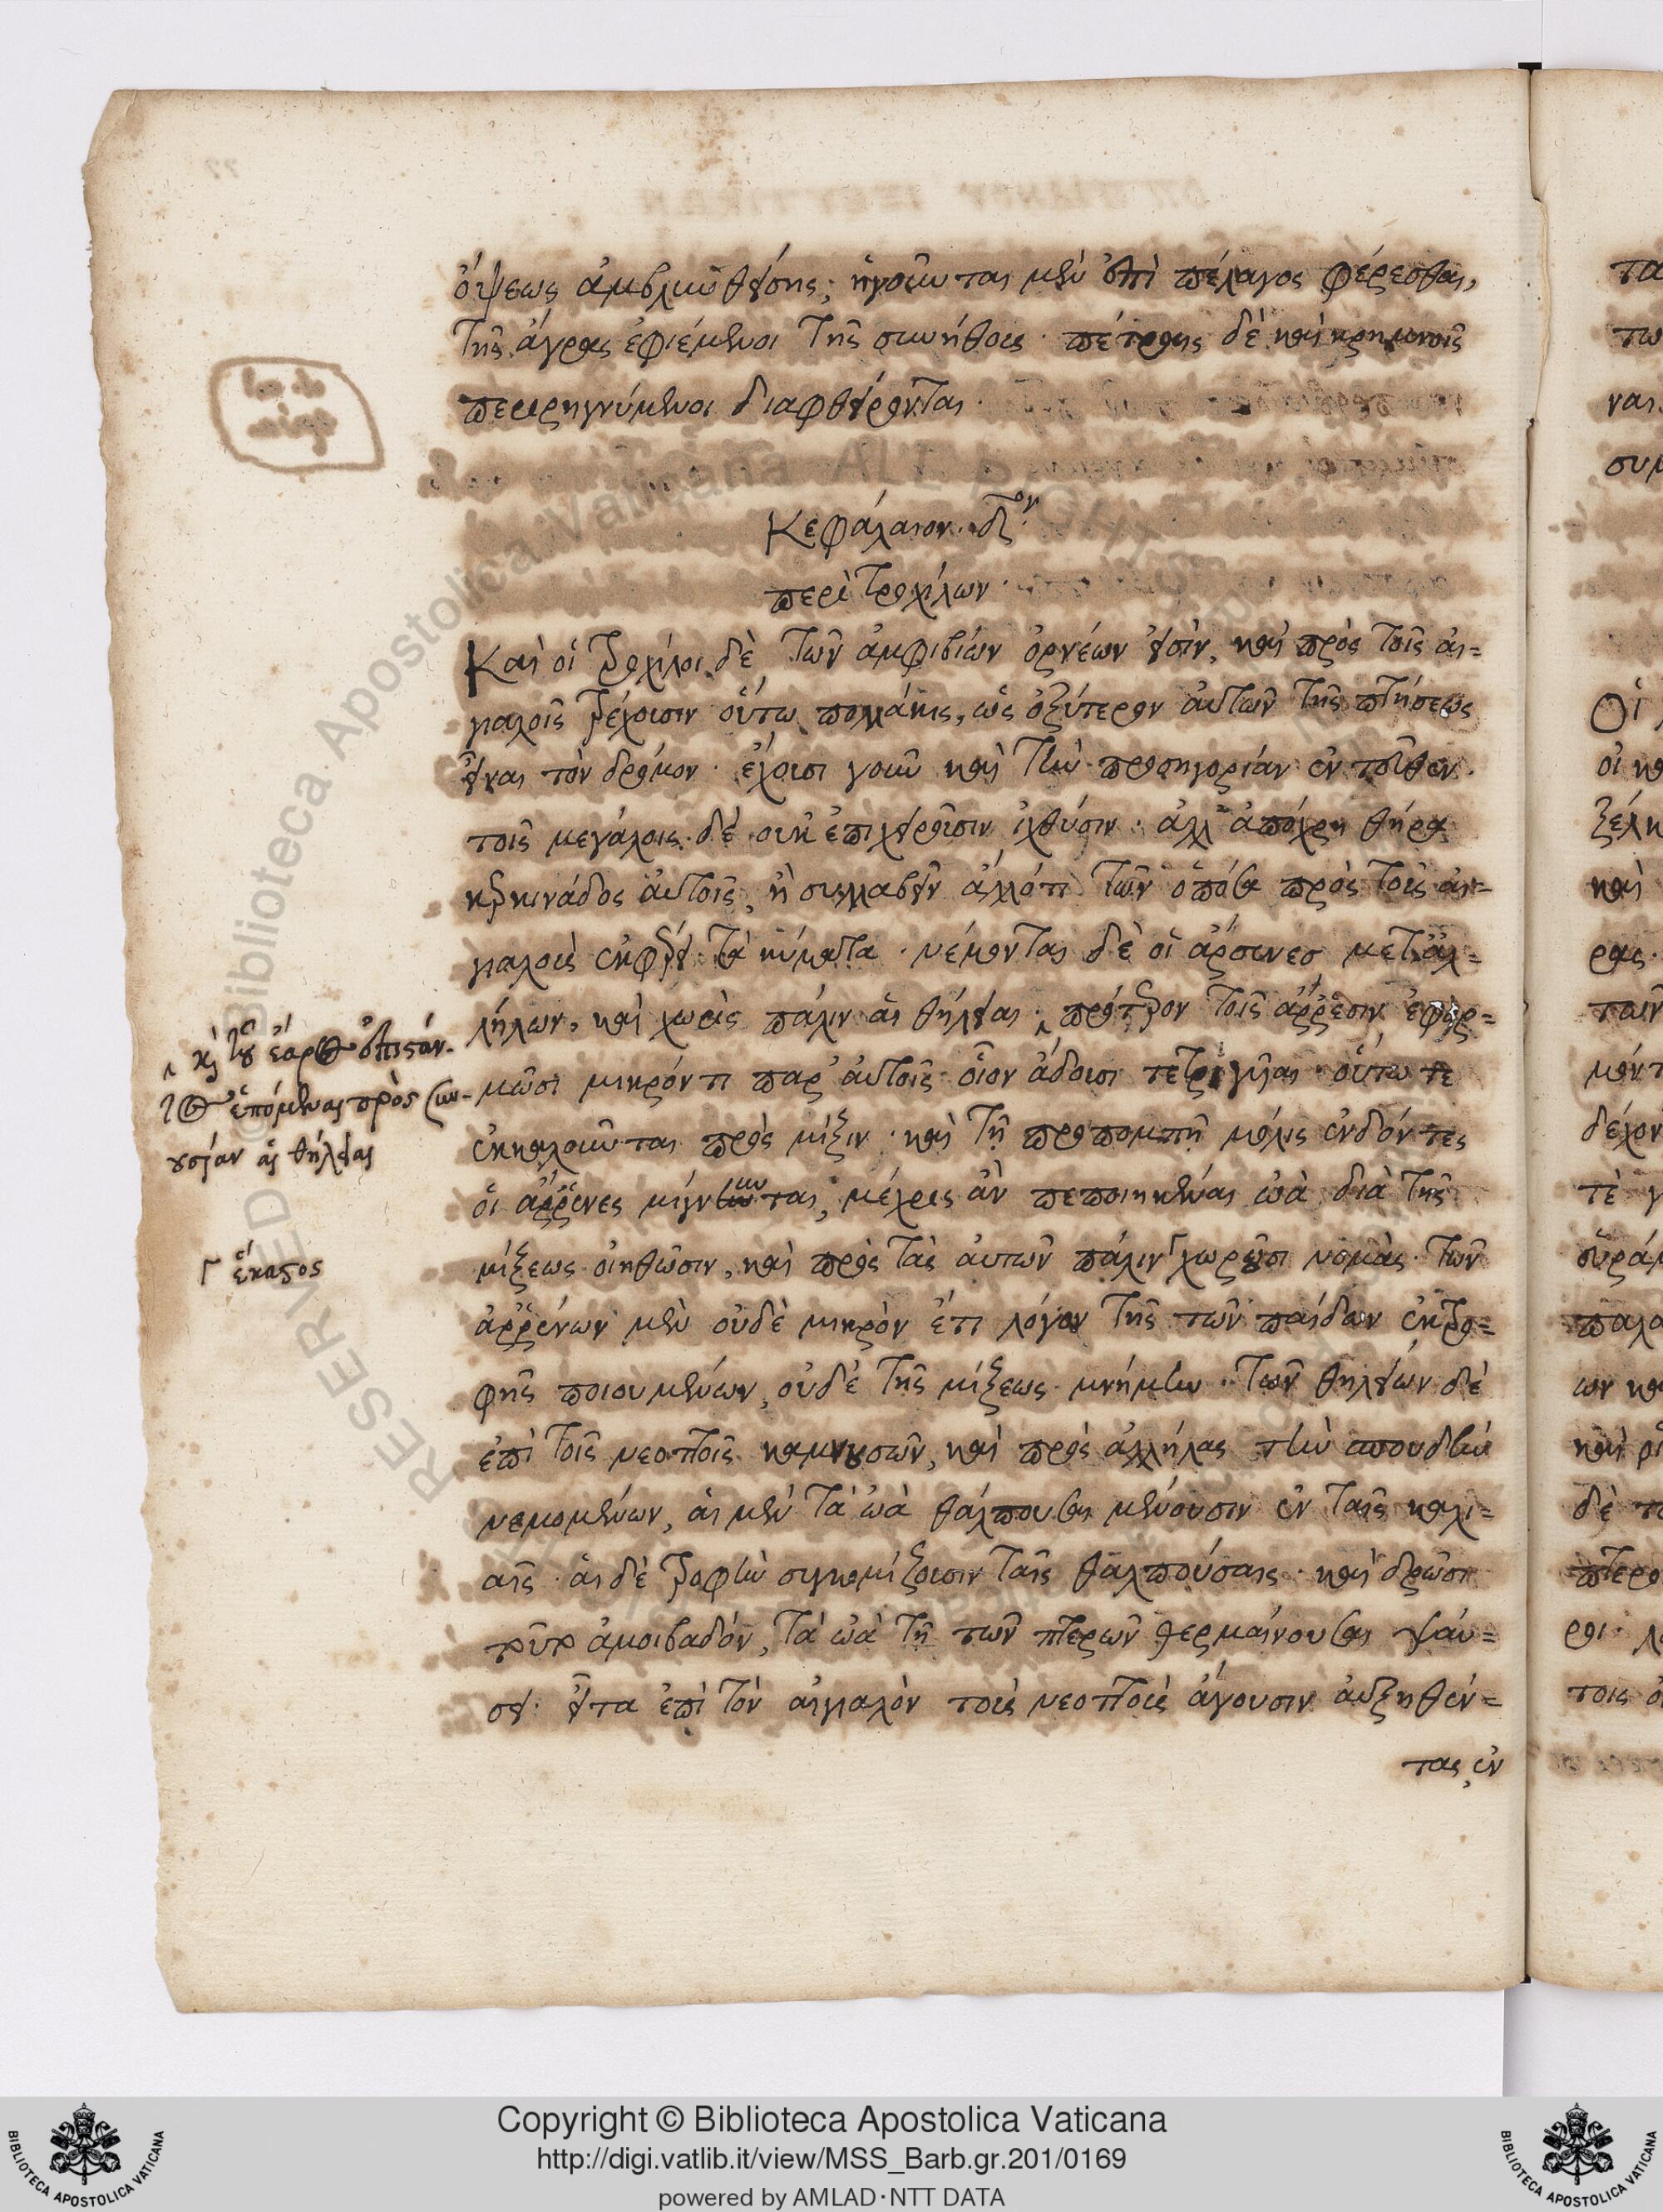 ὄψεως ἀμβλυνθείσης, ἡγοῦνται μὲν ἐπὶ πέλαγος φέρεσθαι,
τῆς ἄγρας ἐφιέμενοι τῆς συνήθους· πέτραις δὲ καὶ κρημνοῖς
περιρηγνύμενοι διαφθείρονται.
Κεφάλαιον. δ^ον.
περὶ τροχίλων·
Καὶ οἱ τροχίλοι δὲ τῶν ἀμφιβίων ὀρνέων εἰσὶν, καὶ πρὸς τοῖς αἰ=
γιαλοῖς τρέχουσιν οὕτω πολλάκις, ὡς ὀξύτερον αὐτῶν τῆς πτήσεως
εἶναι τὸν δρόμον· ἔχουσι γοῦν καὶ τὴν προσηγορίαν ἐντεῦθεν.
τοῖς μεγάλοις δὲ οὐκ ἐπιχειροῦσιν ἰχθύσιν· ἀλλ' ἀπόχρη θήρα
καρκινάδος αὐτοῖς, ἢ συλλαβεῖν ἄλλό τι τῶν ὁπόσα πρὸς τοὺς αἰ=
γιαλοὺς ἐκφέρει τὰ κύματα· νέμονται δὲ οἱ ἄρσενες μετ' ἀλ=
λήλων, καὶ χωρὶς πάλιν αἱ θήλειαι· πρότερον τοῖς ἄῤῥεσιν ἐφορ=
μῶσι μικρόν τι παρ' αὐτοῖς οἷον ἄδουσι τετριγυῖαι· οὕτω τε
ἐκκαλοῦνται πρὸς μίξιν· καὶ τῇ προπομπῇ μόλις ἐνδόντες
οἱ ἄῤῥενες μίγνυνται, μέχρις ἂν πεποιηκέναι ὠὰ διὰ τῆς
μίξεως οἰηθῶσιν, καὶ πρὸς τὰς αὐτῶν πάλιν χωροῦσι νομάς· τῶν
ἀῤῥένων μὲν οὐδὲ μικρὸν ἔτι λόγον τῆς τῶν παίδων ἐκτρο=
φῆς ποιουμένων, οὐδὲ τῆς μίξεως μνήμην· τῶν θηλειῶν δὲ
ἐπὶ τοῖς νεοττοῖς καμνουσῶν, καὶ πρὸς ἀλλήλας τὴν σπουδὴν
νεμομένων, αἱ μὲν τὰ ὠὰ θάλπουσαι μένουσιν ἐν ταῖς καλι=
αῖς· αἱ δὲ τροφὴν συγκομίζουσιν ταῖς θαλπούσαις· καὶ δρῶσι
τοῦτ' ἀμοιβαδόν, τὰ ὠὰ τῇ τῶν πτερῶν θερμαίνουσαι ψαύ=
σει· εἶτα ἐπὶ τὸν αἰγιαλὸν τοὺς νεοττοὺς ἄγουσιν αὐξηθέν=
τας, ἐν
καὶ τοῦ ἔαρος ἐπιστάν-
τος ἑπόμεναι πρὸς συν-
ουσίαν αἱ θήλειαι
ἕκαστος
Copyright © Biblioteca Apostolica Vaticana
http://digi.vatlib.it/view/MSS_Barb.gr.201/0169
powered by AMLAD·NTT DATA
BIBLIOTECA APOSTOLICA VATICANA
BIBLIOTECA APOSTOLICA VATICANA